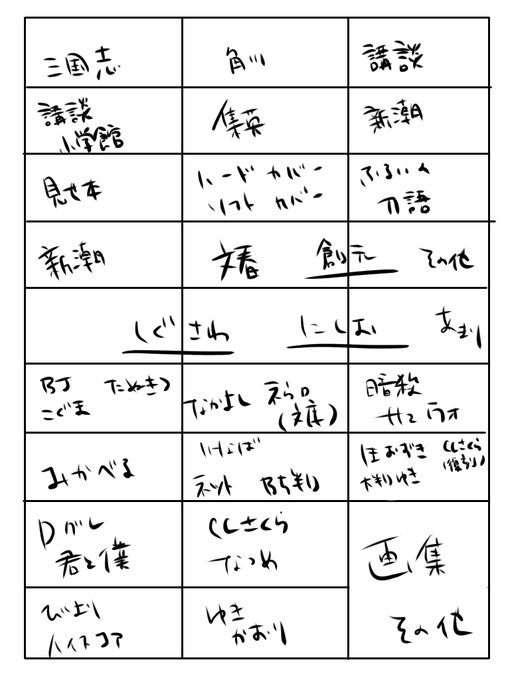 三国志
角川
講談
講談
小学館
集英
新潮
見せ本
ハードカバー
ソフトカバー
ふるい人
刀語
新潮
文春
創元
その他
しぐさわ
にしお
あまり
BJ たぬきつ
こぐま
なかよし
(文庫)
暗殺
みかべる
いけなば
ネット B5判
ほおずき
大判 ゆき
(CLさくら
(復刻))
Dグレ
君と僕
CCさくら
なつめ
画集
その他
ハイスコア
ゆき
かおり